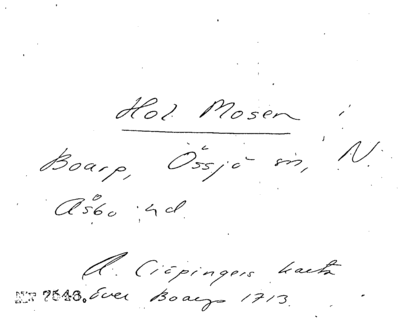 Hol Mosen i
Boarp, Össjö sn, N.
Åsbo hd
A. Ciöpingers karta
7548. över Boarp 1713